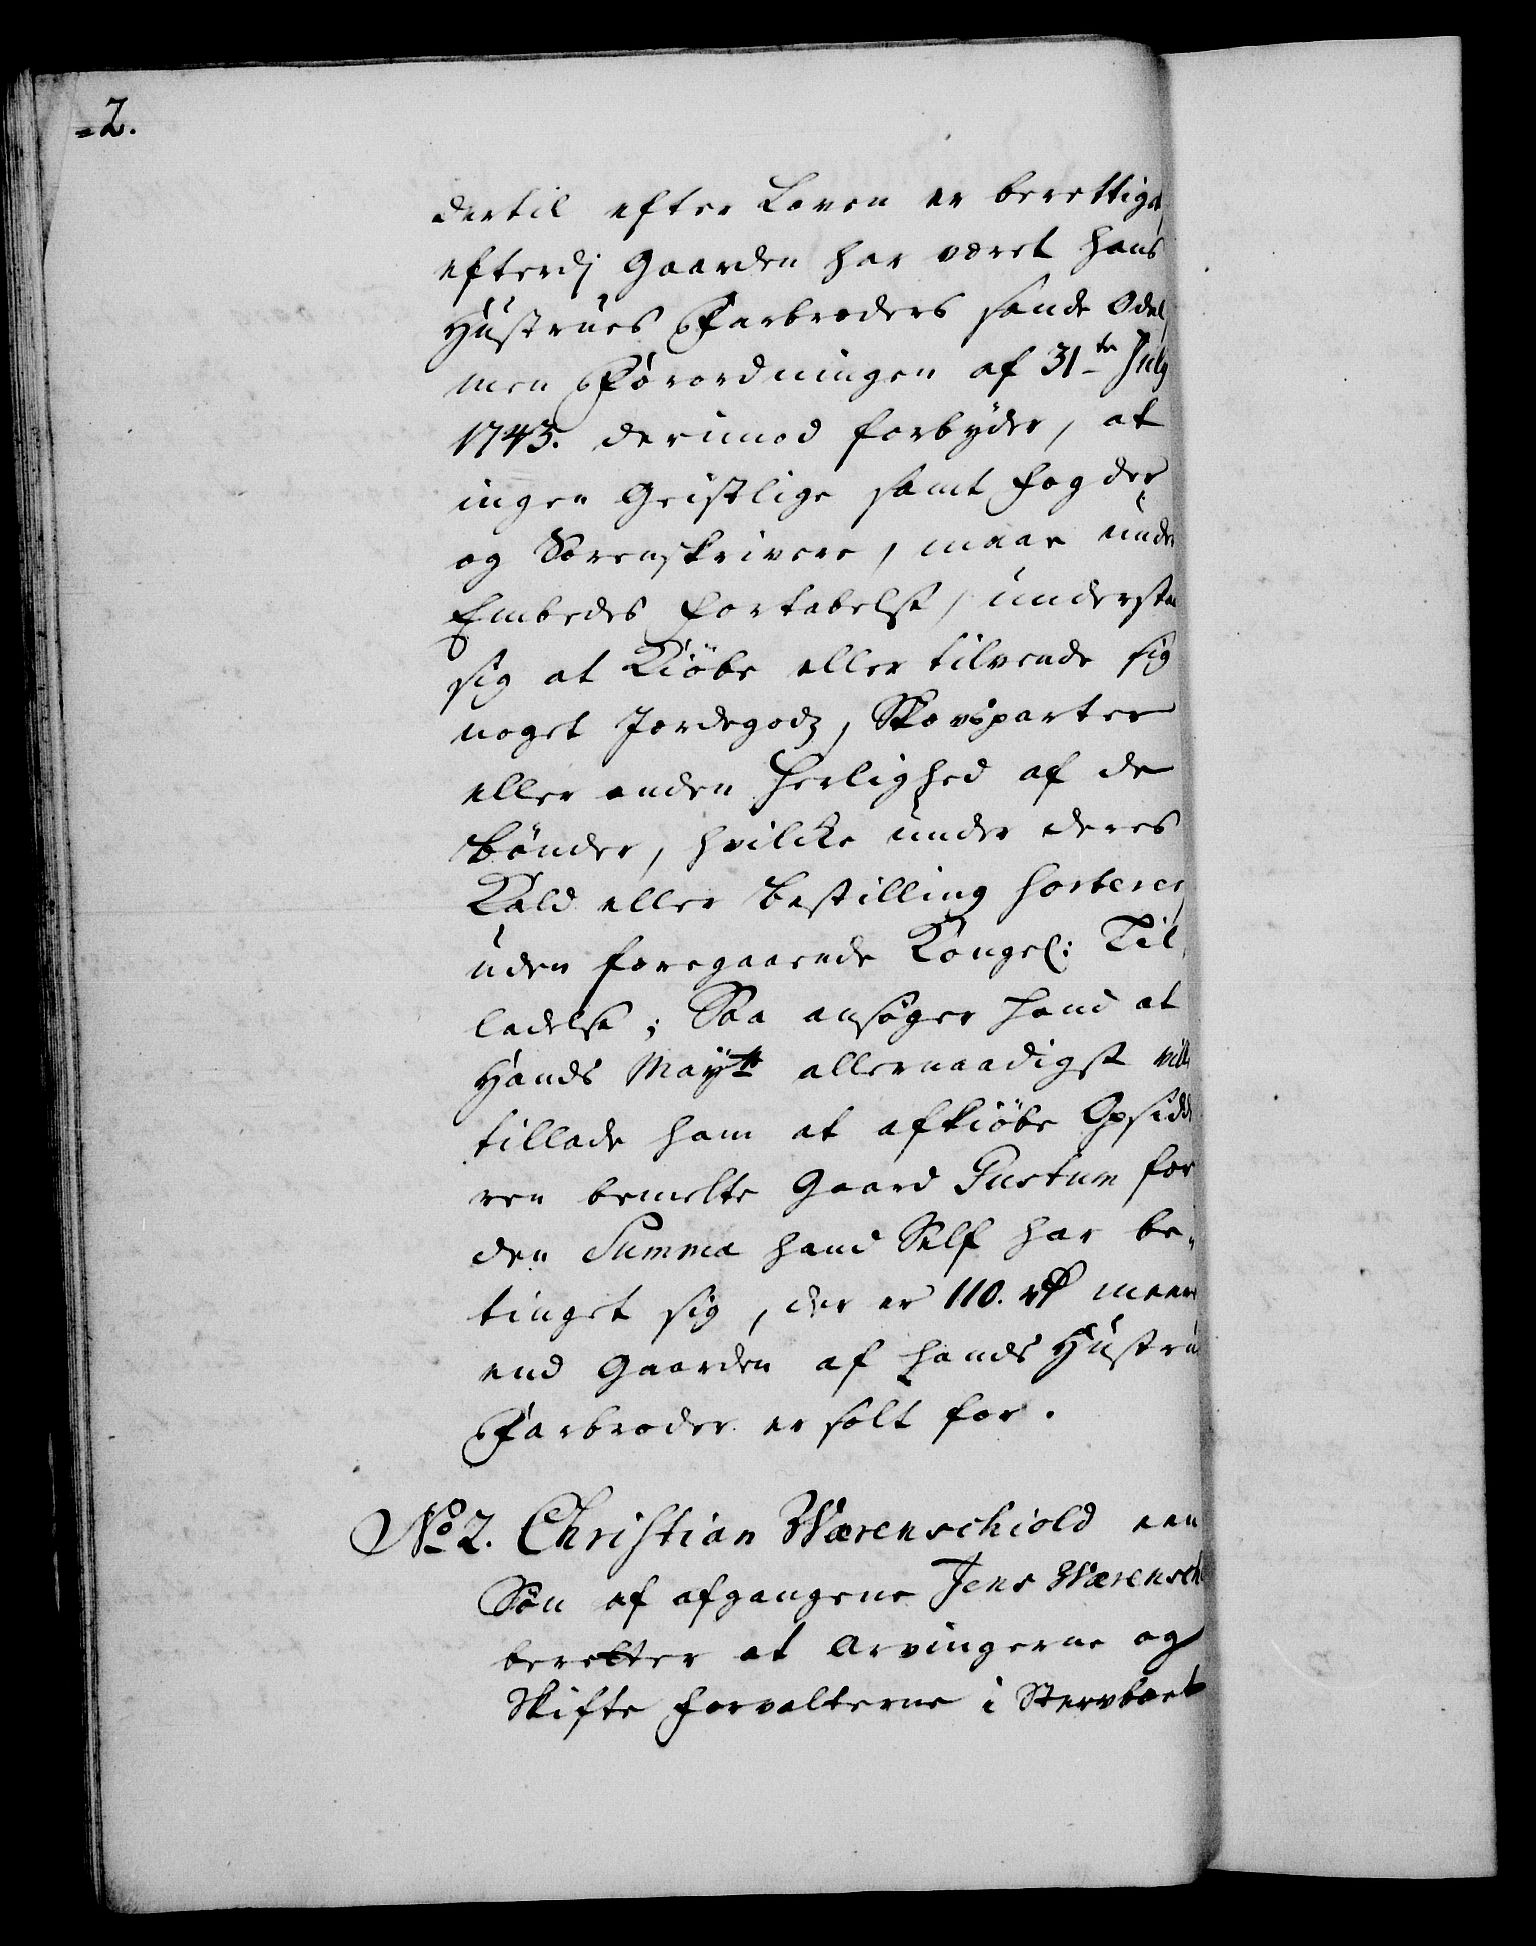 2.
dertil efter Loven er berettiget,
efterdj Gaarden har været hans
Hustrues Farbroders sande Odel,
men Forordningen af 31te July
1743. derimod forbyder, at
ingen Geistlige samt Fogder
og Sorenskrivere, maae under
Embedes Fortabelse, understaa
sig at Kiöbe eller tilvende sig
noget Jordegodz, Skovsparter
eller anden Herlighed af de
Bönder, hvilcke under deres
Kald eller Bestilling Sorterer,
uden foregaaende Kongel: Til,
ladelse; Saa ansöger hand at
Hands Maytt allernaadigst ville
tillade ham at afkiöbe Opsidde
ren bemelte Gaard Gustum for
den Summa hand Self har be,
tinget sig, der er 110. rd meere
end Gaarden af hands Hustru
Farbroder er solt for.
No 2. Christian Wærenschiold een
Sön af afgangene Jens Wærensch
beretter at Arvingerne og
Skifte Forvalterne i Stervboet